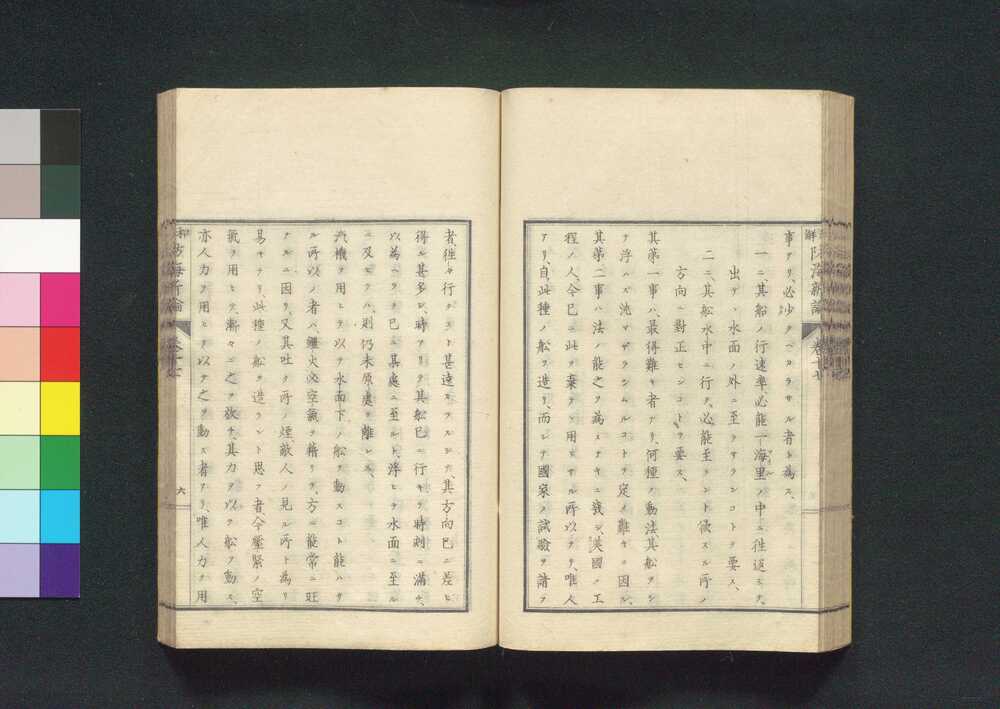 解 防海新論 卷十七
事アリ、必少クベカラサル者ト為ス、
一ニ、其船ノ行速率、必能一海里ノ中ニ往返シテ、
出テ丶水面ノ外ニ至ラサランコトヲ要ス、
二ニ其船水中ニ行テ、必能至ラント欲スル所ノ
方向ニ對正センコトヲ要ス、
其第一事ハ、最得難キ者アリ、何種ノ動法、其船ヲシ
テ浮ハズ沈マザランムルコトヲ定メ難キニ因ル、
其第二事ハ法ノ能之ヲ為スナキニ發シ、英國ノ工
程ノ人、今已ニ此ヲ棄テ丶用ヒサル所以ナリ、唯人
アリ、自此種ノ船ヲ造リ、而シテ國家ノ試驗ヲ請フ
者、往々行クコト甚遠カラスシテ、其方向已ニ差ヒ
得ル甚多シ、時アリテ其舩已ニ行キテ時刻ニ滿チ、
以為ヘラク已ニ其處ニ至ルト、浮ヒテ水面ニ至ル
ニ及ヒテハ、則仍未原處ヲ離レス、
汽機ヲ用ヒテ以テ水面下ノ舩ヲ動スコト能ハサ
ル所以ノ者ハ、爐火必空氣ヲ藉リテ、方ニ能常ニ旺
ナルニ因リ、又其吐ク所ノ煙、敵人ノ見ル所ト為リ
易キナリ、此種ノ舩ヲ造ラント思フ者、今壓緊ノ空
氣ヲ用ヒテ、漸々ニ之ヲ放チ、其力ヲ以テ舩ヲ動ス、
亦人力ヲ用ヒテ以テ之ヲ動ス者アリ、唯人力ヲ用
防海新論 卷十七
六